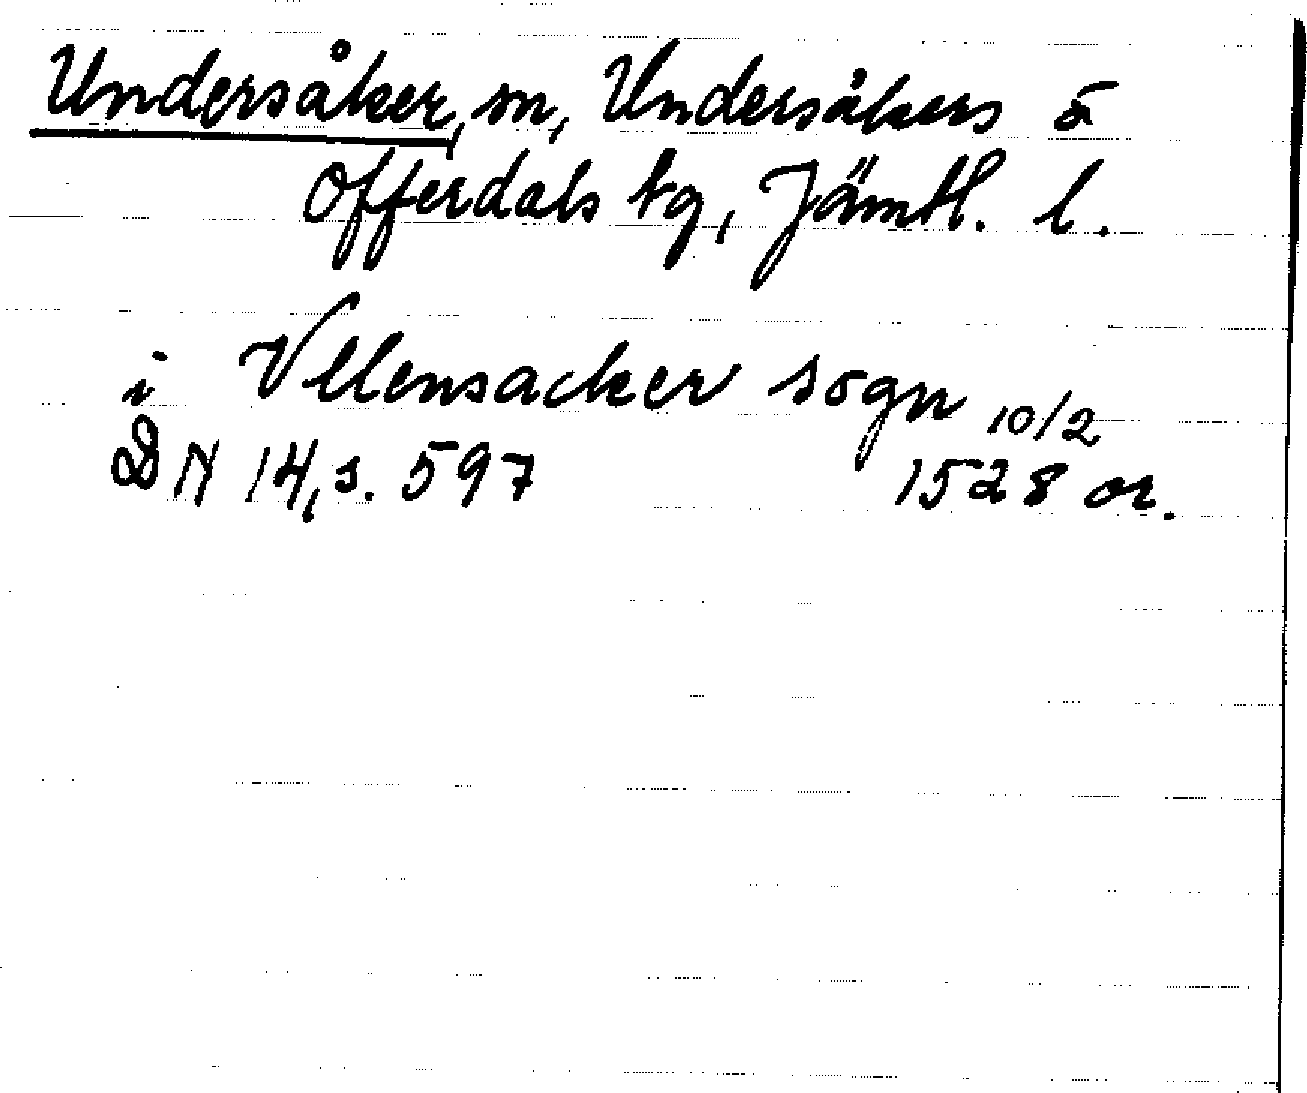 Undersåker, sn, Undersåkers o
Offerdals tg, Jämtl. l.
i Vllensacker sogn 10/2
DN 14, s. 597 1528 or.